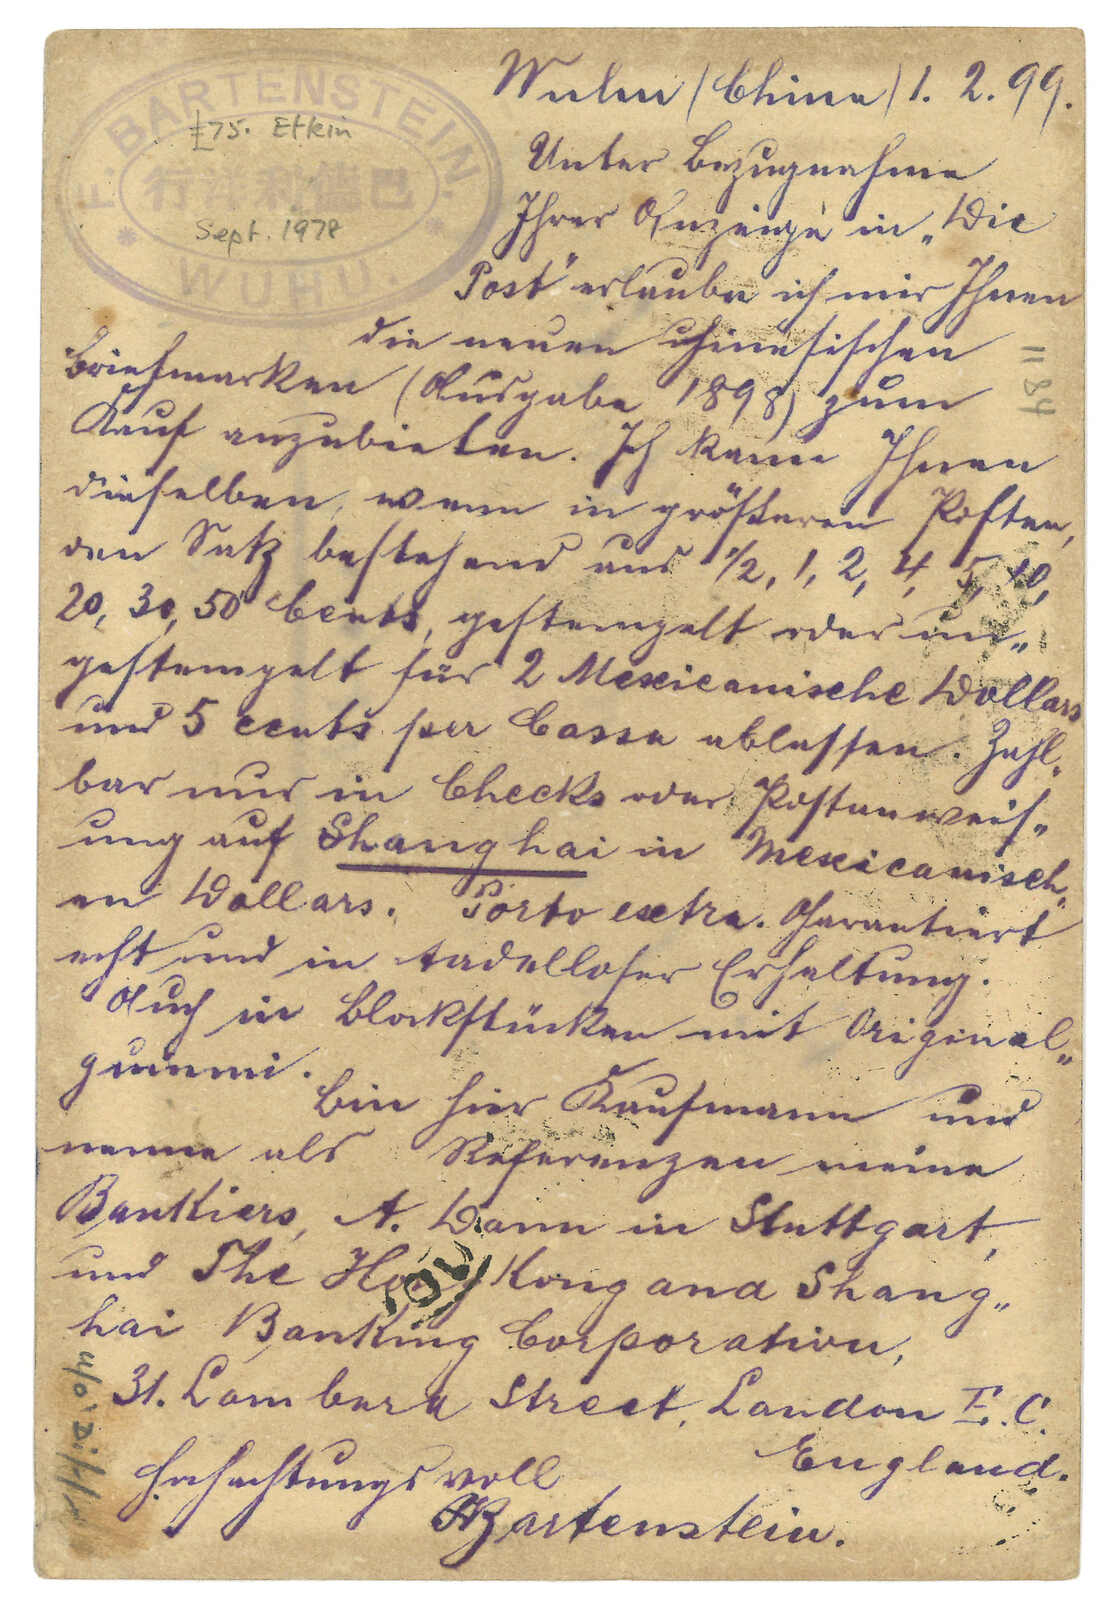 F. BARTENSTEIN.
WUHU.
£75. Etkin
Sept. 1978
Wuhu (China) 1. 2. 99.
Unter Bezugnahme
Ihrer Anzeige in „Die
Post" erlaube ich mir Ihnen
die neuen chinesischen
Briefmarken (Ausgabe 1898) zum
Kauf anzubieten. Ich kann Ihnen
dieselben, wenn in größeren Posten,
den Satz bestehend aus 1/2, 1, 2, 4, 5, 10,
20, 30, 50 Cents, gestempelt oder un„
gestempelt für 2 Mexicanische Dollars
und 5 cents per Cassa ablassen. Zahl„
bar nur in Checks oder Postanweis„
ung auf Shanghai in Mexicanisch„
en Dollars. Porto extra. Garantiert
echt und in tadelloser Erhaltung.
Auch in Blockstücken mit Original„
gummi.
Bin hier Kaufmann und
nenne als Referenzen meine
Bankiers, A. Dann in Stuttgart,
und The Hong Kong and Shang„
hai Banking Corporation,
31. Lombard Street, London E. C.
England.
Hochachtungsvoll
Bartenstein.
1184